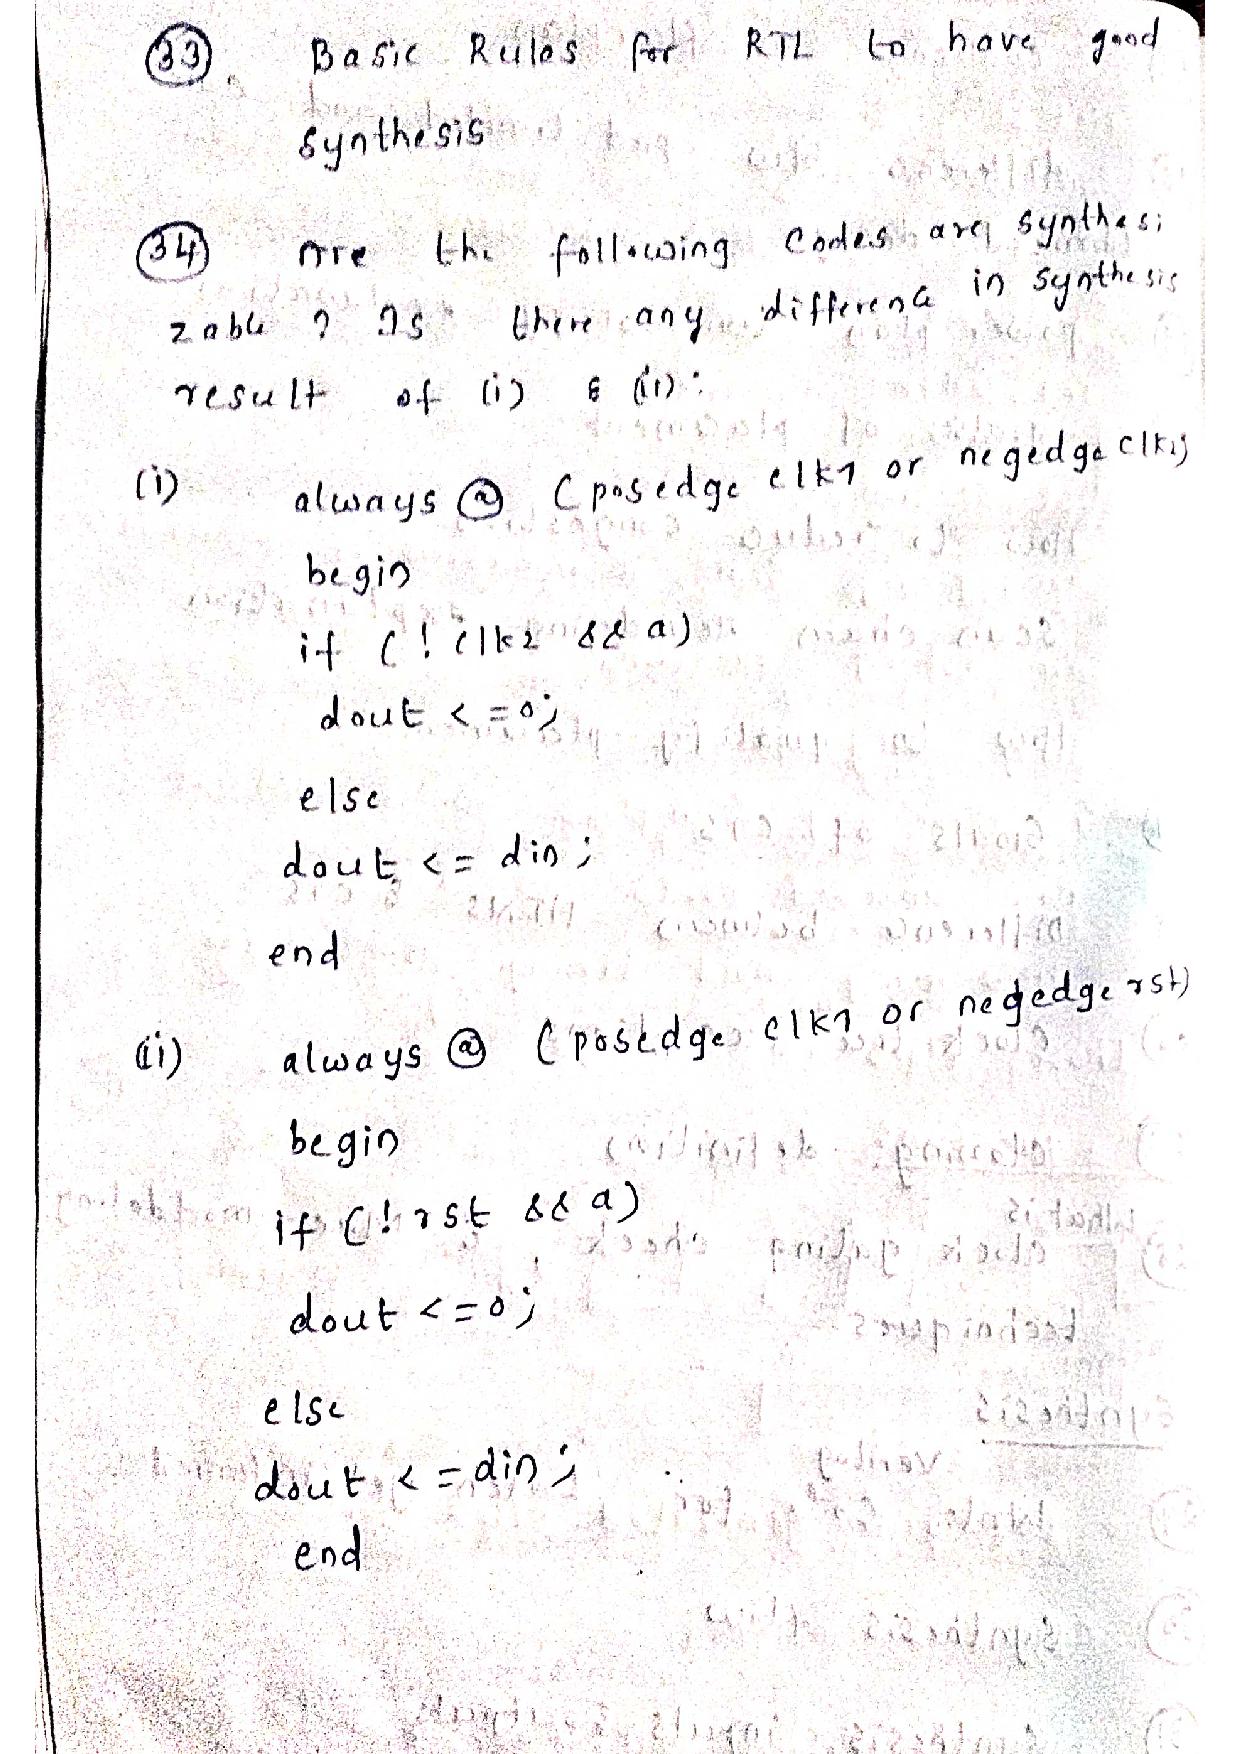 33. Basic Rules for RTL to have good
synthesis
34 Are the following Codes are synthesi
zable ? Is there any difference in synthesis
result of (i) & (ii):
(i) always @ (posedge clk1 or negedge clk2)
begin
if (! clk2 && a)
dout <=0;
else
dout <= din;
end
(ii) always @ (posedge clk1 or negedge rst)
begin
if (! rst && a)
dout <=0;
else
dout <= din;
end